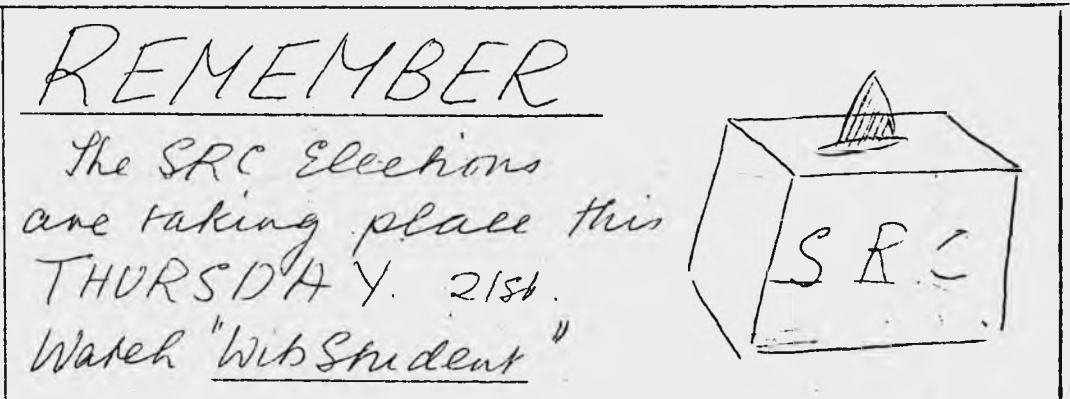 REMEMBER
The SRC Elections
are taking place this
THURSDAY. 21st.
Watch "Wits Student"
SRC